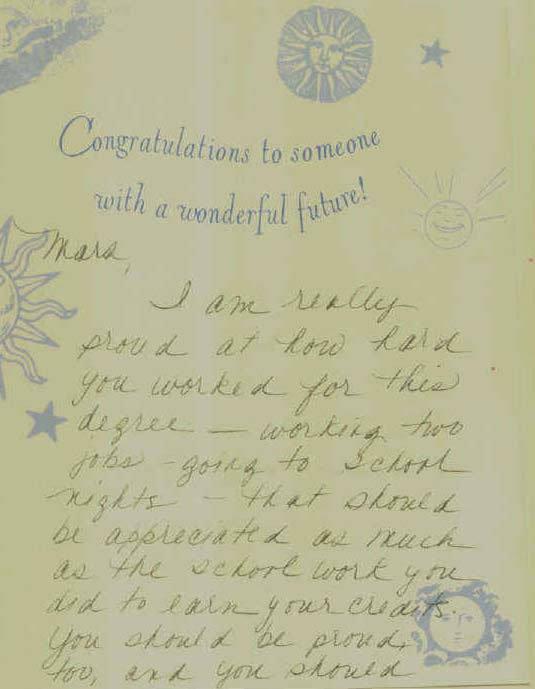 Congratulations to someone
with a wonderful future!
Mara,
I am really
proud at how hard
you worked for this
degree — working two
jobs - going to school
nights - that should
be appreciated as much
as the school work you
did to earn your credits.
You should be proud,
too, and you should